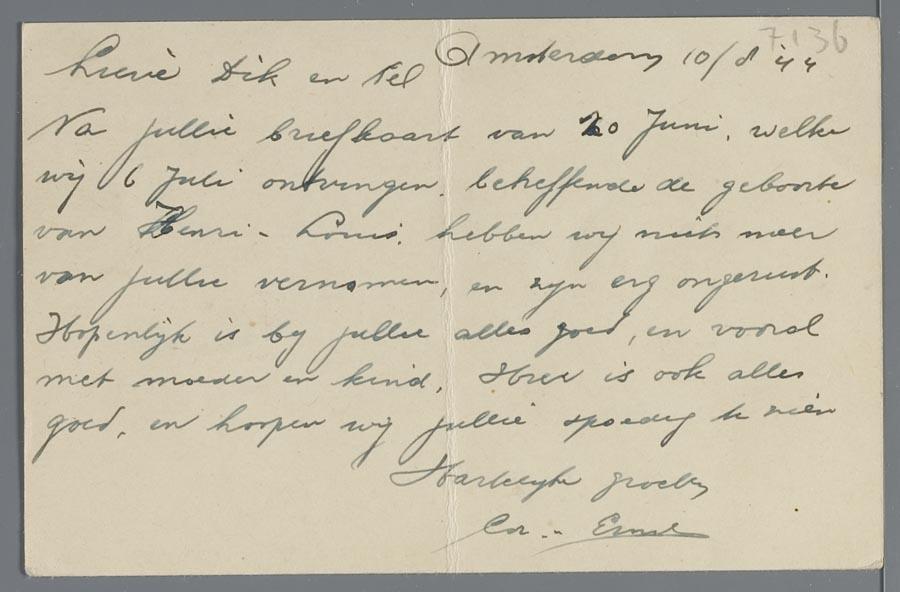 7136
Amsterdam 10/8 '44
Lieve Dik en Nel
Na jullie briefkaart van 20 Juni, welke
wij 6 Juli ontvingen, betreffende de geboorte
van Henri-Louis, hebben wij niets meer
van jullie vernomen, en zijn erg ongerust.
Hopenlijk is bij jullie alles goed, en vooral
met moeder en kind. Hier is ook alles
goed, en hoopen wij jullie spoedig te zien
Hartelijke groeten
Cor -